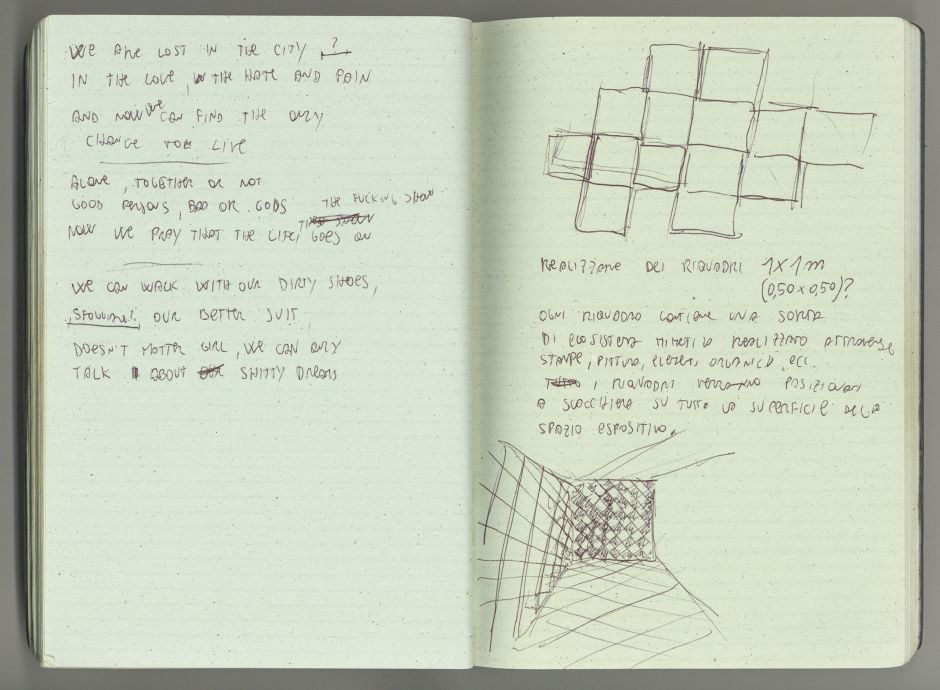 WE ARE LOST IN THE CITY ?
IN THE LOVE, IN THE HATE AND PAIN
AND NOW WE CAN FIND THE ONLY
CHANGE TO LIVE
ALONE, TOGETHER OR NOT
GOOD PERSONS, BAD OR GODS
THE FUCKING SHOW
NOW WE PRAY THAT THE LIFE GOES ON
WE CAN WALK WITH OUR DIRTY SHOES,
OUR BETTER SUIT
DOESN'T MATTER GIRL, WE CAN ONLY
TALK ABOUT SHITTY DREAMS
REALIZZARE DEI RIQUADRI 1X1m
(0,50x0,50)?
OGNI RIQUADRO CONTIENE UNA SORTA
DI ECOSISTEMA MIMETICO REALIZZATO ATTRAVERSO
STAMPE, PITTURA, ELEMENTI ORGANICI, ECC.
I RIQUADRI VERRANNO POSIZIONATI
A SCACCHIERA SU TUTTA LA SUPERFICIE DELLO
SPAZIO ESPOSITIVO.